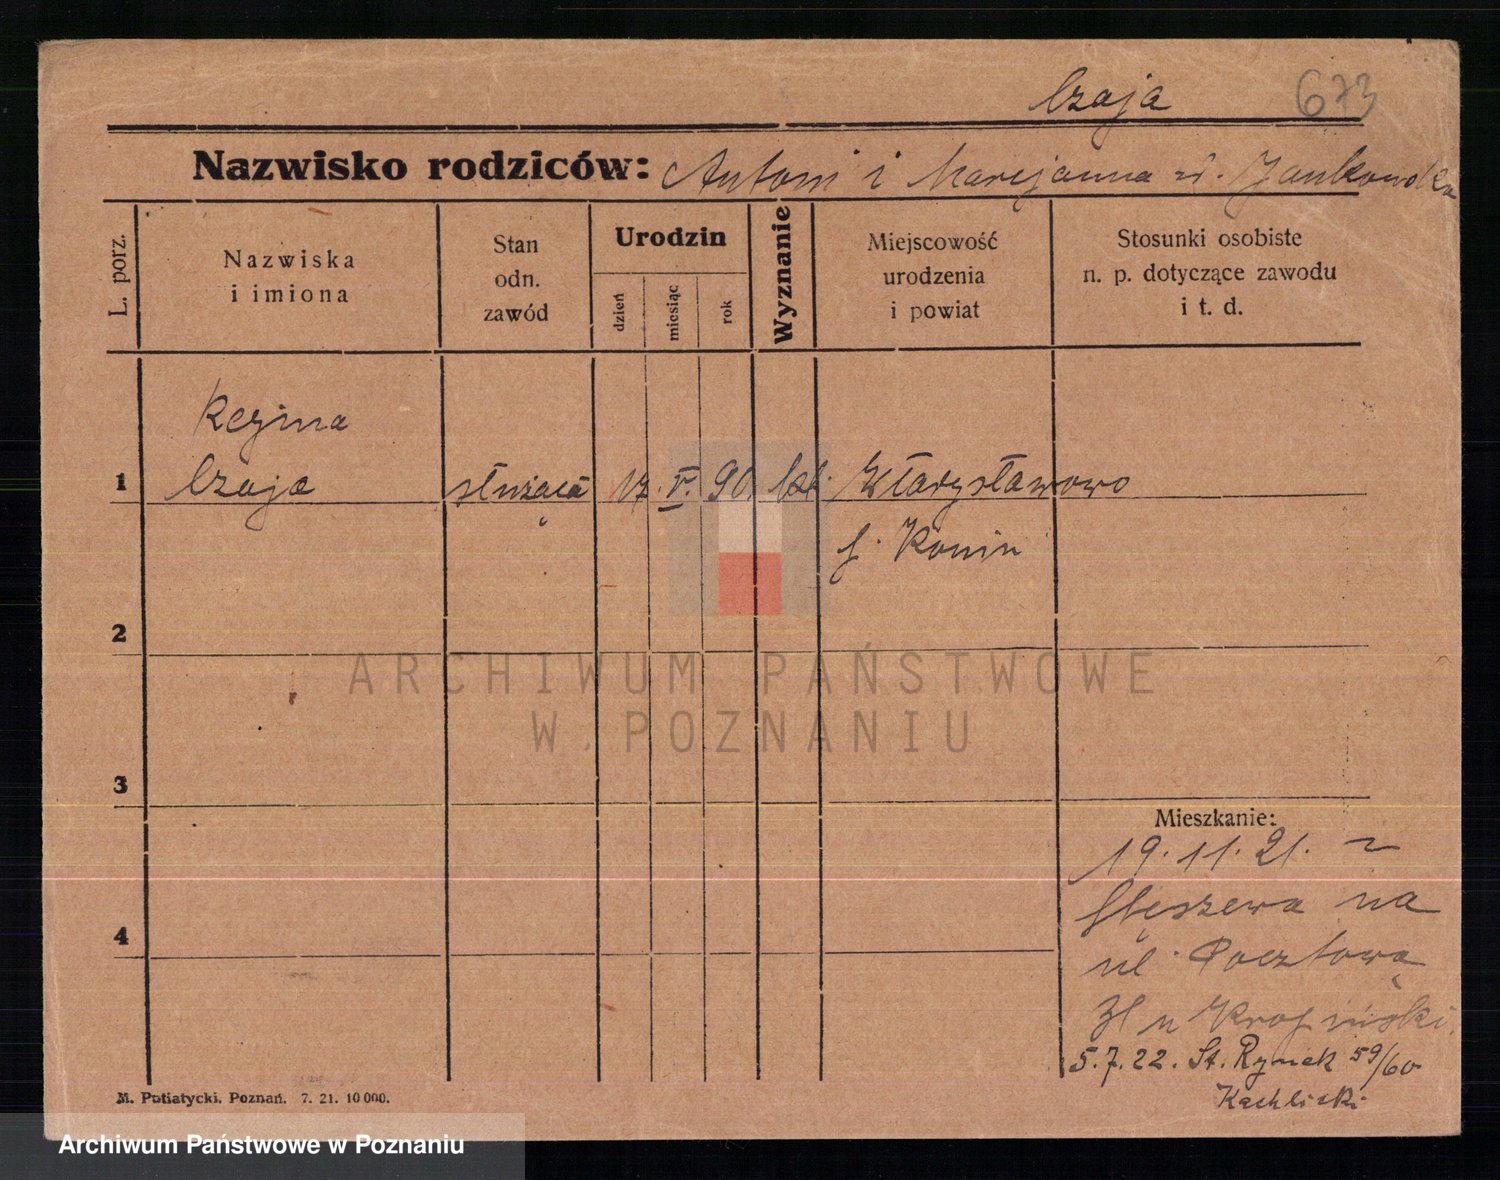 Czaja 673
Nazwisko rodziców: Antoni i Maryjanna z d. Jankowska
L. porz.
Nazwiska
i imiona
Stan
odn.
zawód
Urodzin
dzień
miesiąc
rok
Wyznanie
Miejscowość
urodzenia
i powiat
Stosunki osobiste
n. p. dotyczące zawodu
i t. d.
Regina
1 Czaja służąca 17. V. 90. kat. Władysławowo
p. Konin
2
3
4
Mieszkanie:
19. 11. 21. z
na
ul. Pocztową
31 u
5. 7. 22. St. Rynek 59/60
M. Putiatycki. Poznań. 7. 21. 10 000.
ARCHIWUM PAŃSTWOWE
W POZNANIU
Archiwum Państwowe w Poznaniu